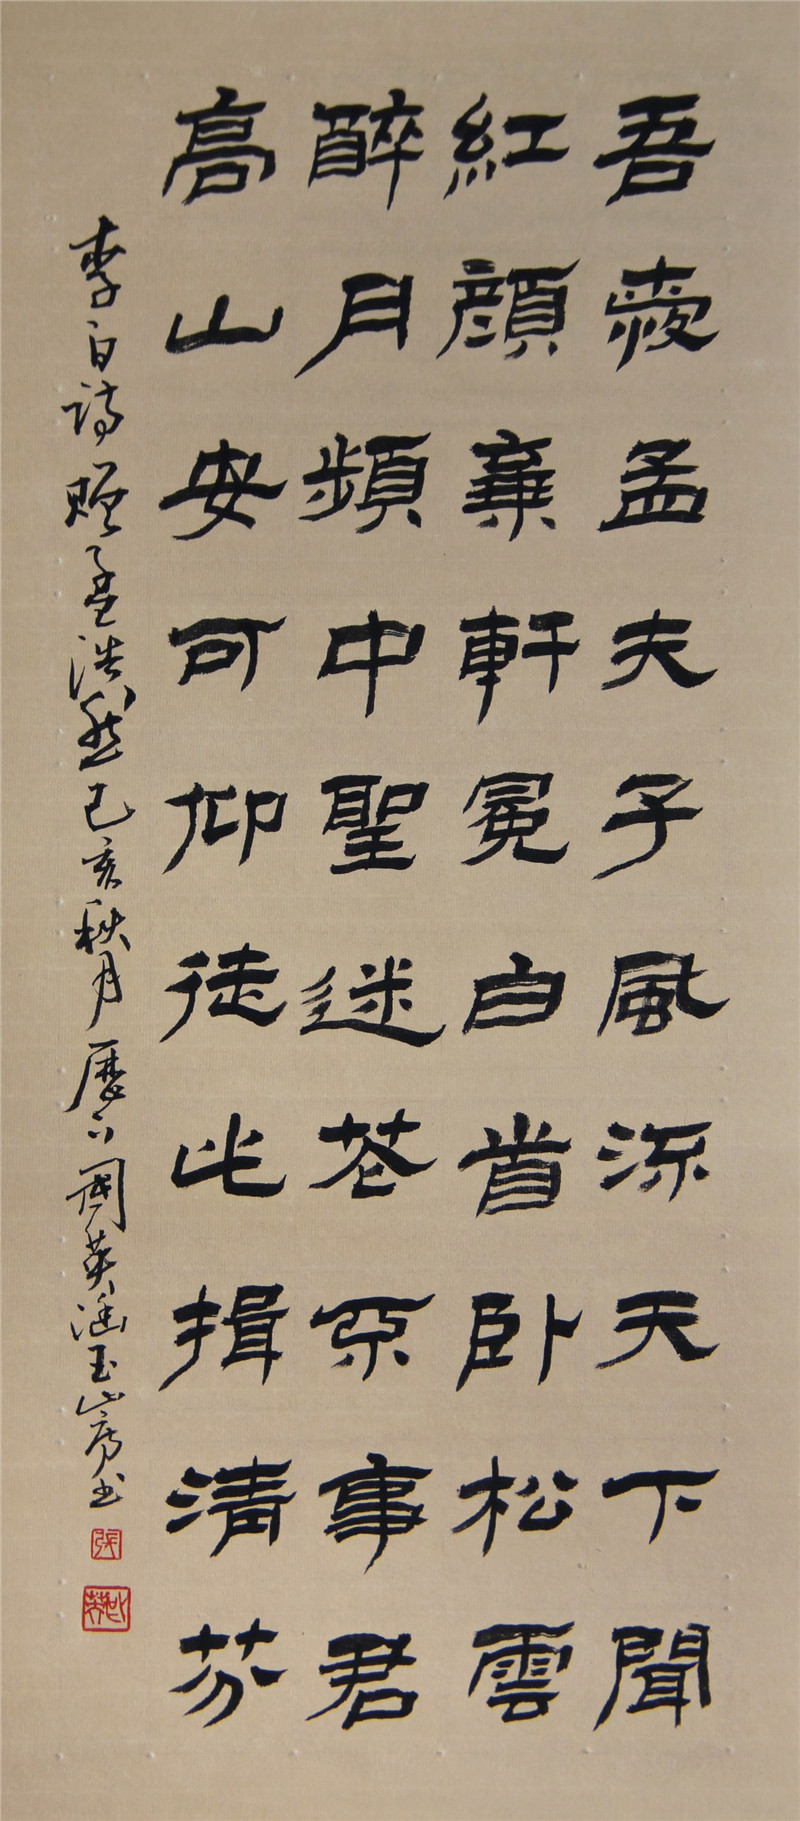 吾愛孟夫子風流天下聞
紅顔棄軒冕白首卧松雲
醉月頻中聖迷花不事君
高山安可仰徒此揖清芬
李白詩贈孟浩然己亥秋月歷下國英涵玉山房书
張